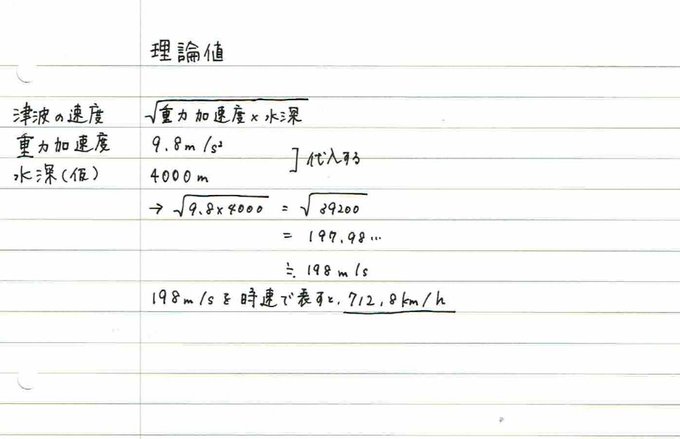 理論値
津波の速度 √重力加速度×水深
重力加速度 9.8m/s²
水深(仮) 4000m ］代入する
→ √9.8×4000 = √39200
= 197.98…
≒ 198m/s
198m/sを時速で表すと、712.8km/h